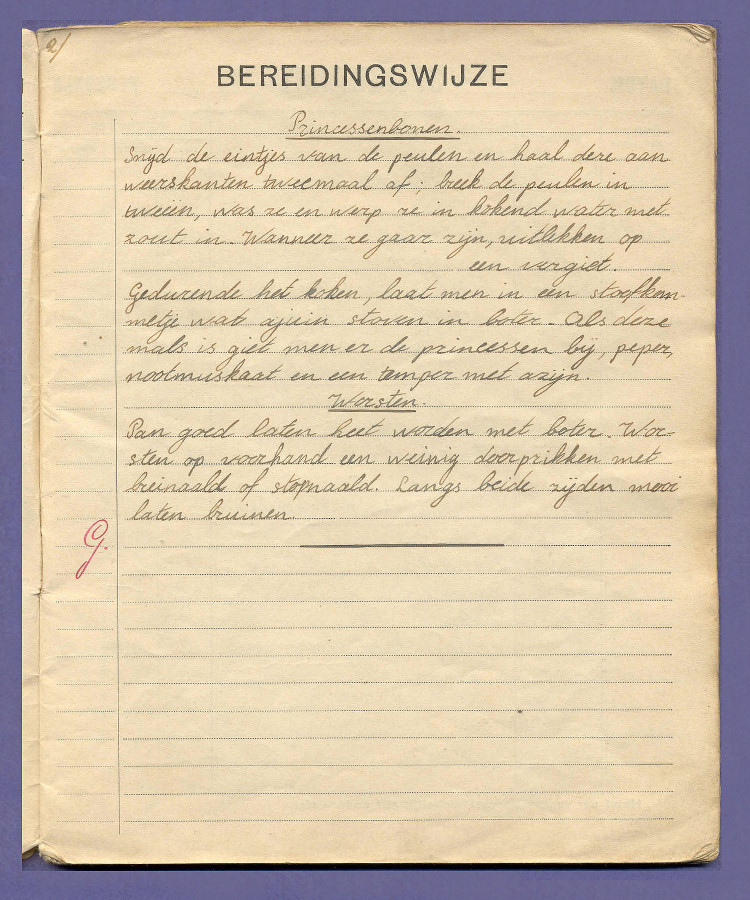 2/
BEREIDINGSWIJZE
Princessenbonen.
Snijd de eintjes van de peulen en haal deze aan
weerskanten tweemaal af; breek de peulen in
tweeën, was ze en werp ze in kokend water met
zout in. Wanneer ze gaar zijn, uitlekken op
een vergiet.
Gedurende het koken, laat men in een stoofkom-
metje wat ajuin stoven in boter. Als deze
mals is giet men er de princessen bij, peper,
nootmuskaat en een temper met azijn.
Worsten.
Pan goed laten heet worden met boter. Wor-
sten op voorhand een weinig doorprikken met
breinaald of stopnaald. Langs beide zijden mooi
laten bruinen.
G.